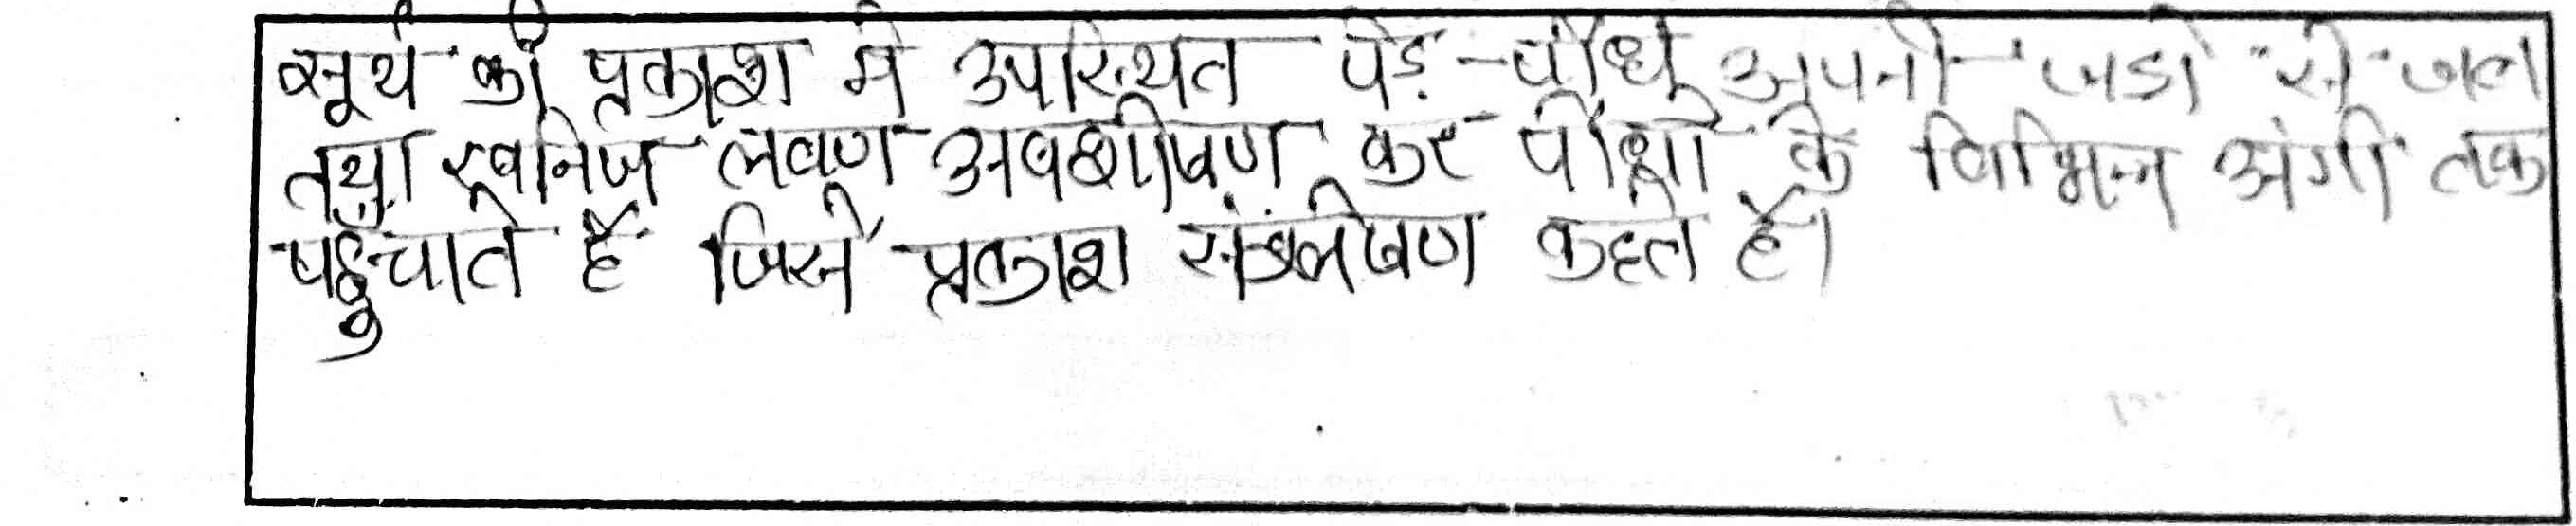 सूर्य की प्रकाश में उपस्थित पेड़-पौधे अपनी जडो से जल
तथा खनिज लवण अवशोषण कर पौधों के विभिन्न अंगो तक
पहुचाते है जिसे प्रकाश संश्लेषण कहते है।